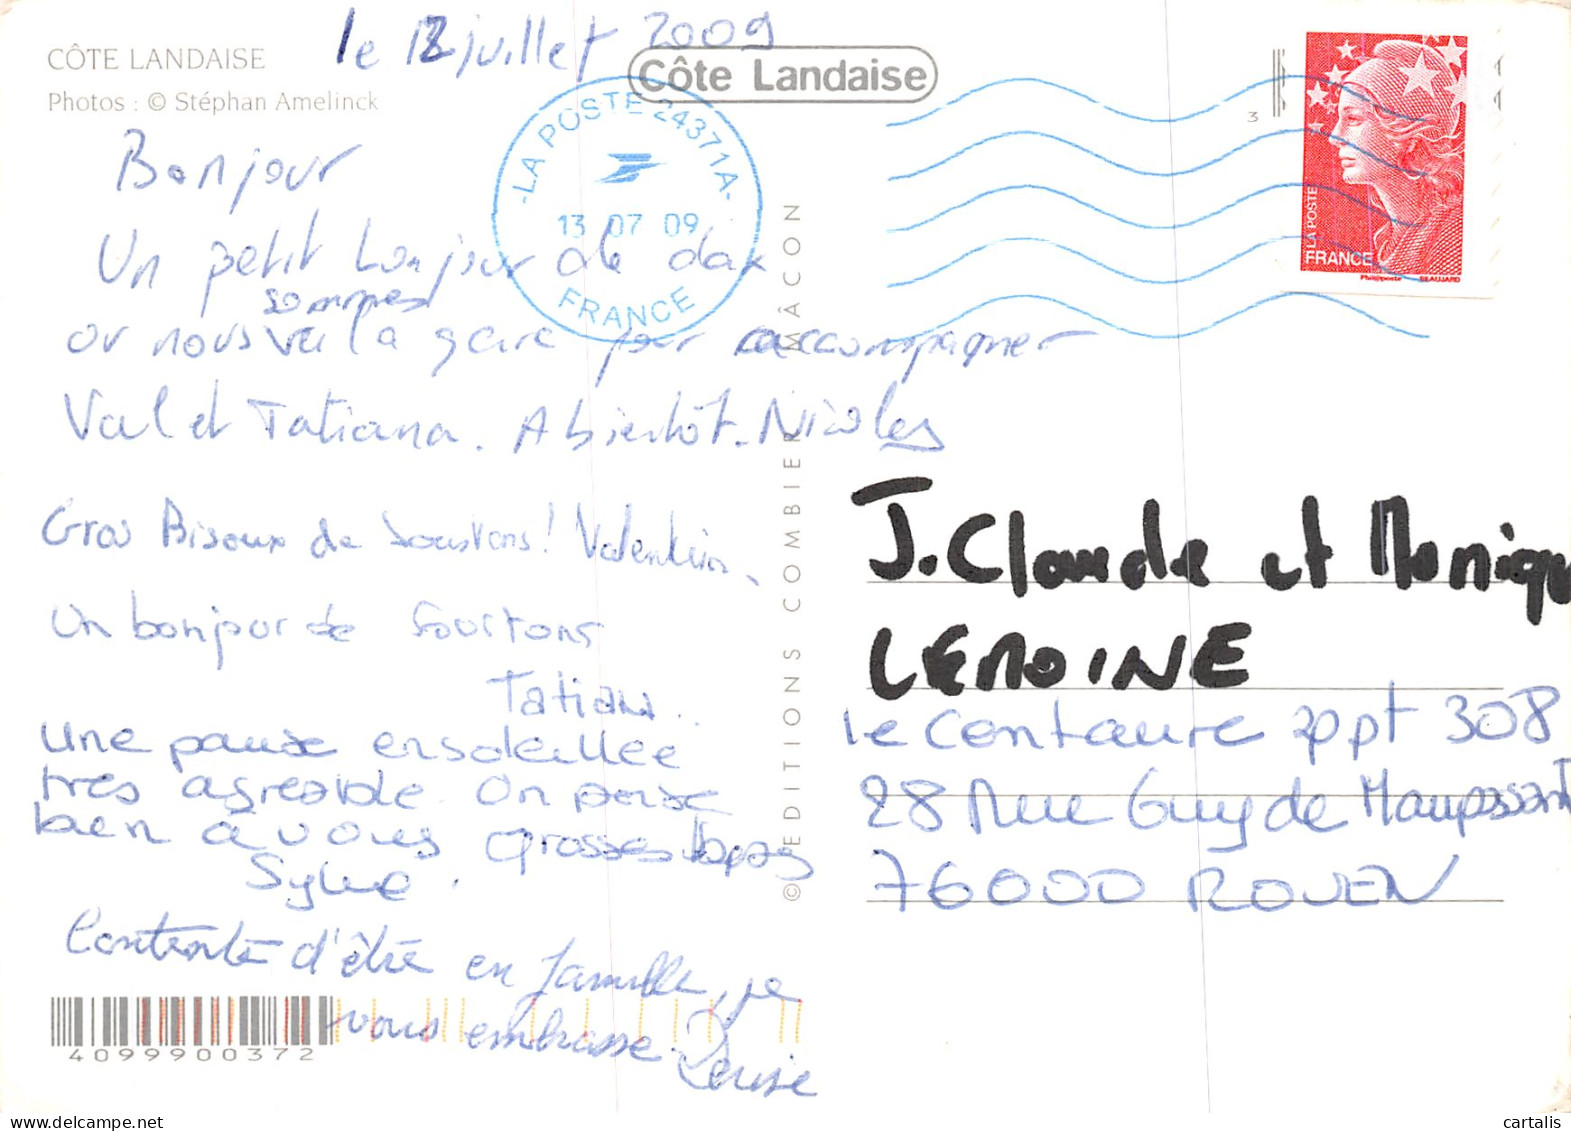 CÔTE LANDAISE
Photos : © Stéphan Amelinck
le 12 juillet 2009
Côte Landaise
LA POSTE 24371A
13 07 09
FRANCE
3
LA POSTE
FRANCE
Philippoise BEAUJARD
Bonjour
Un petit bonjour de dax
sommes
ou nous à la gare pour accompagner
Val et Tatiana. A bientôt. Nicolas
Gros Bisoux de Soustons! Valentin.
Un bonjour de Soustons
Tatiana..
Une pause ensoleillee
très agreable. On pense
bien à vous grosses
Sylvie.
Contente d'être en famille, je
vous embrasse. Denise
4099900372
© EDITIONS COMBIER MÂCON
J. Claude et Monique
LEMOINE
Le Centaure appt 308
28 Rue Guy de Maupassant
76000 ROUEN
cartalis